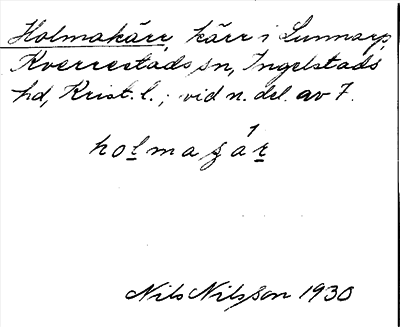 Holmakärr, kärr i Lunnarp,
Kverrestads sn, Ingelstads
hd, Krist. l.; vid n. del. av 7.
holmaʂár
Nils Nilsson 1930